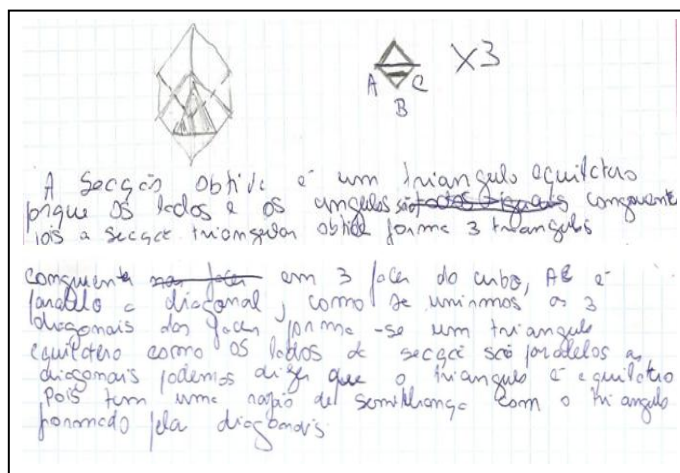 X3
A C
B
A secção obtida é um triangulo equilátero
porque os lados e os angulos são todos iguais congruente
pois a secção triangular obtida forma 3 triangulos
congruente nas faces em 3 faces do cubo, AC é
paralelo a diagonal, como se unirmos as 3
diagonais das faces forma-se um triangulo
equilátero como os lados da secção são paralelos as
diagonais podemos dizer que o triangulo é equilátero
pois tem uma razão de semelhança com o triangulo
formado pela diagonais